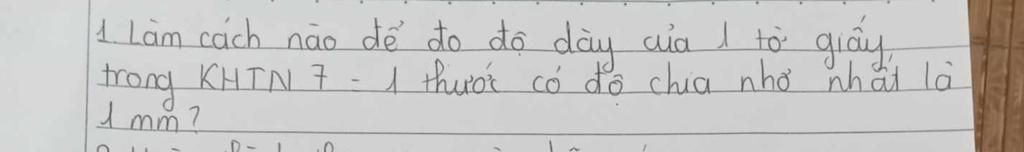 1. Làm cách nào để đo độ dày của 1 tờ giấy
trong KHTN 7 = 1 thước có độ chia nhỏ nhất là
1 mm?